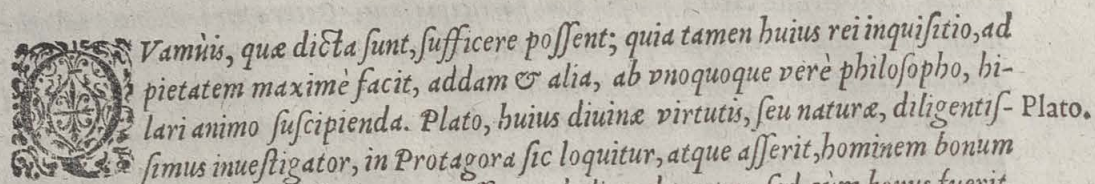 QVamùis, quæ dicta ſunt, ſufficere poſſent; quia tamen huius rei inquiſitio, ad
pietatem maximè facit, addam & alia, ab vnoquoque verè philoſopho, hi-
lari animo ſuſcipienda. Plato, huius diuinæ virtutis, ſeu naturæ, diligentiſ- Plato.
ſimus inueſtigator, in Protagora ſic loquitur, atque aſſerit, hominem bonum